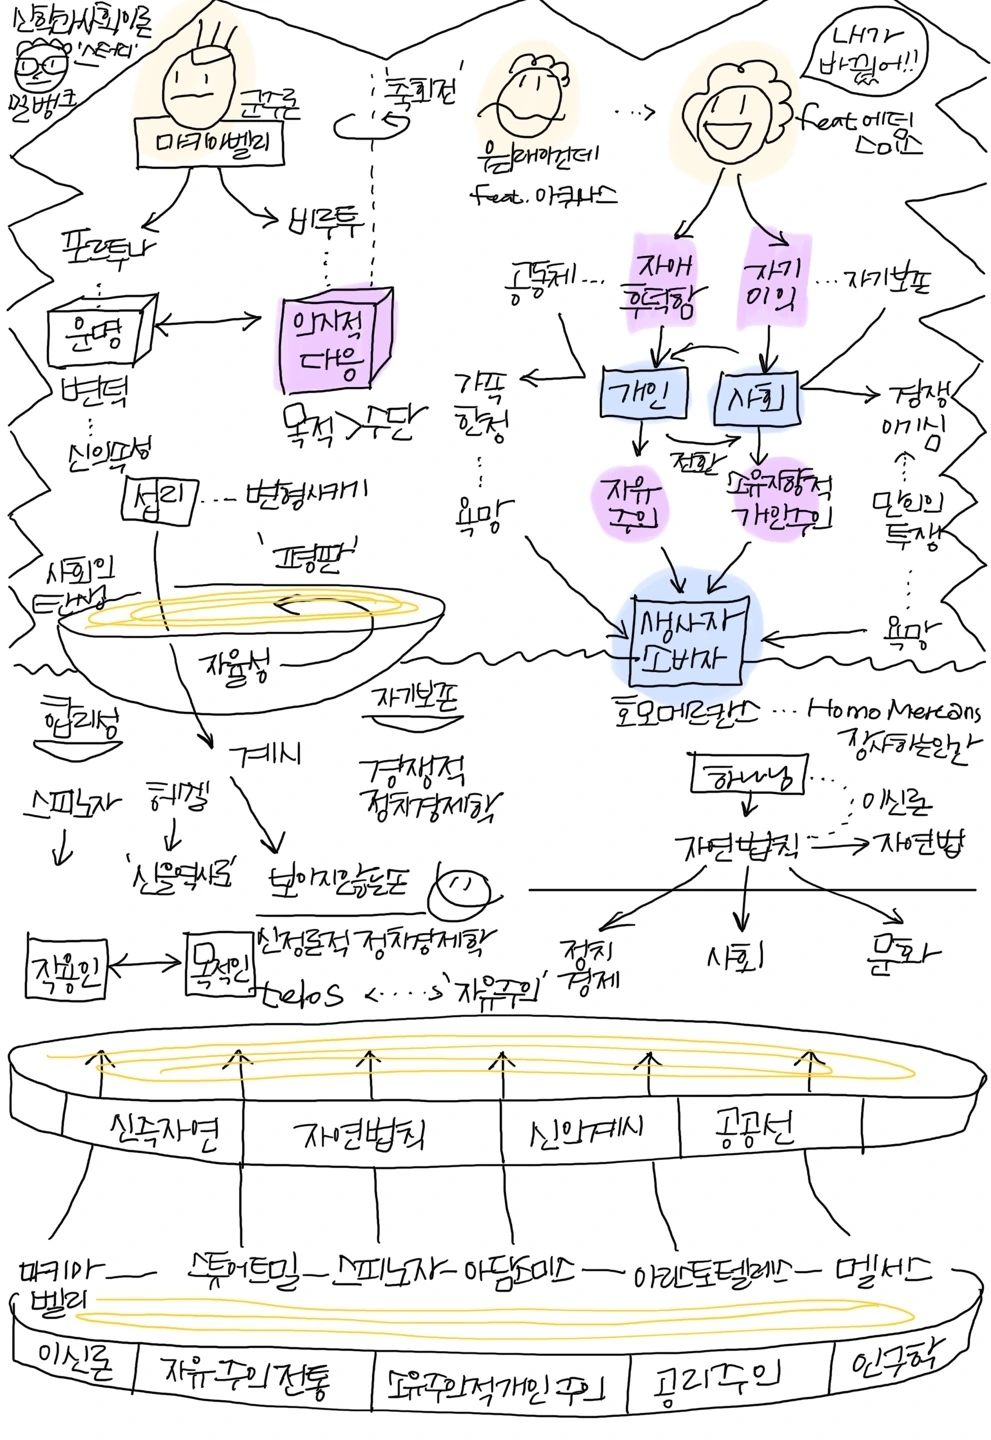 신학과사회이론
'스터디'
밀뱅크
군주론
마키아벨리
'축회전'
feat. 아퀴나스
내가
바꿨어!!
feat 에덤
스미스
포르투나
비루투
운명
의지적
대응
변덕
목적>수단
신의속성
섭리
변형시키기
'평판'
사회의
탄생
자율성
공동체
자애
후덕함
자기
이익
자기보존
가족
한정
개인
사회
경쟁
이기심
전환
욕망
자유
주의
소유지향적
개인주의
만인의
투쟁
욕망
생산자
소비자
호모메르칸스
Homo Mercans
장사하는인간
합리성
자기보존
계시
경쟁적
정치경제학
스피노자
헤겔
'신을역사로'
보이지않는손
신정론적 정치경제학
작용인
목적인
telos
'자유주의'
하나님
이신론
자연법칙
자연법
정치
경제
사회
문화
신즉자연
자연법칙
신의계시
공공선
마키아
벨리
스튜어트밀
스피노자
아담스미스
아리스토텔레스
멜서스
이신론
자유주의전통
소유주의적개인주의
공리주의
인구학